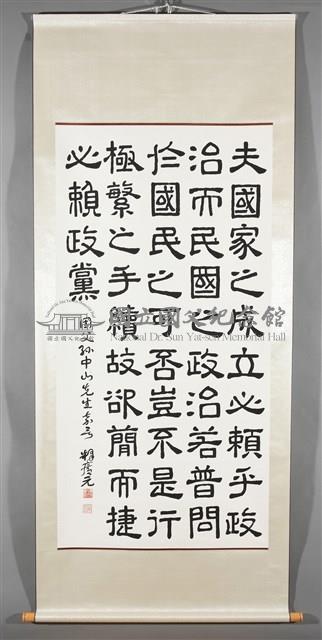 夫國家之成立必賴乎政
治而民國之政治若普問
於國民之可否豈不是行
極繁之手續故欲簡而捷
必賴政黨
國父孫中山先生嘉言
國立國父紀念館
National Dr. Sun Yat-sen Memorial Hall